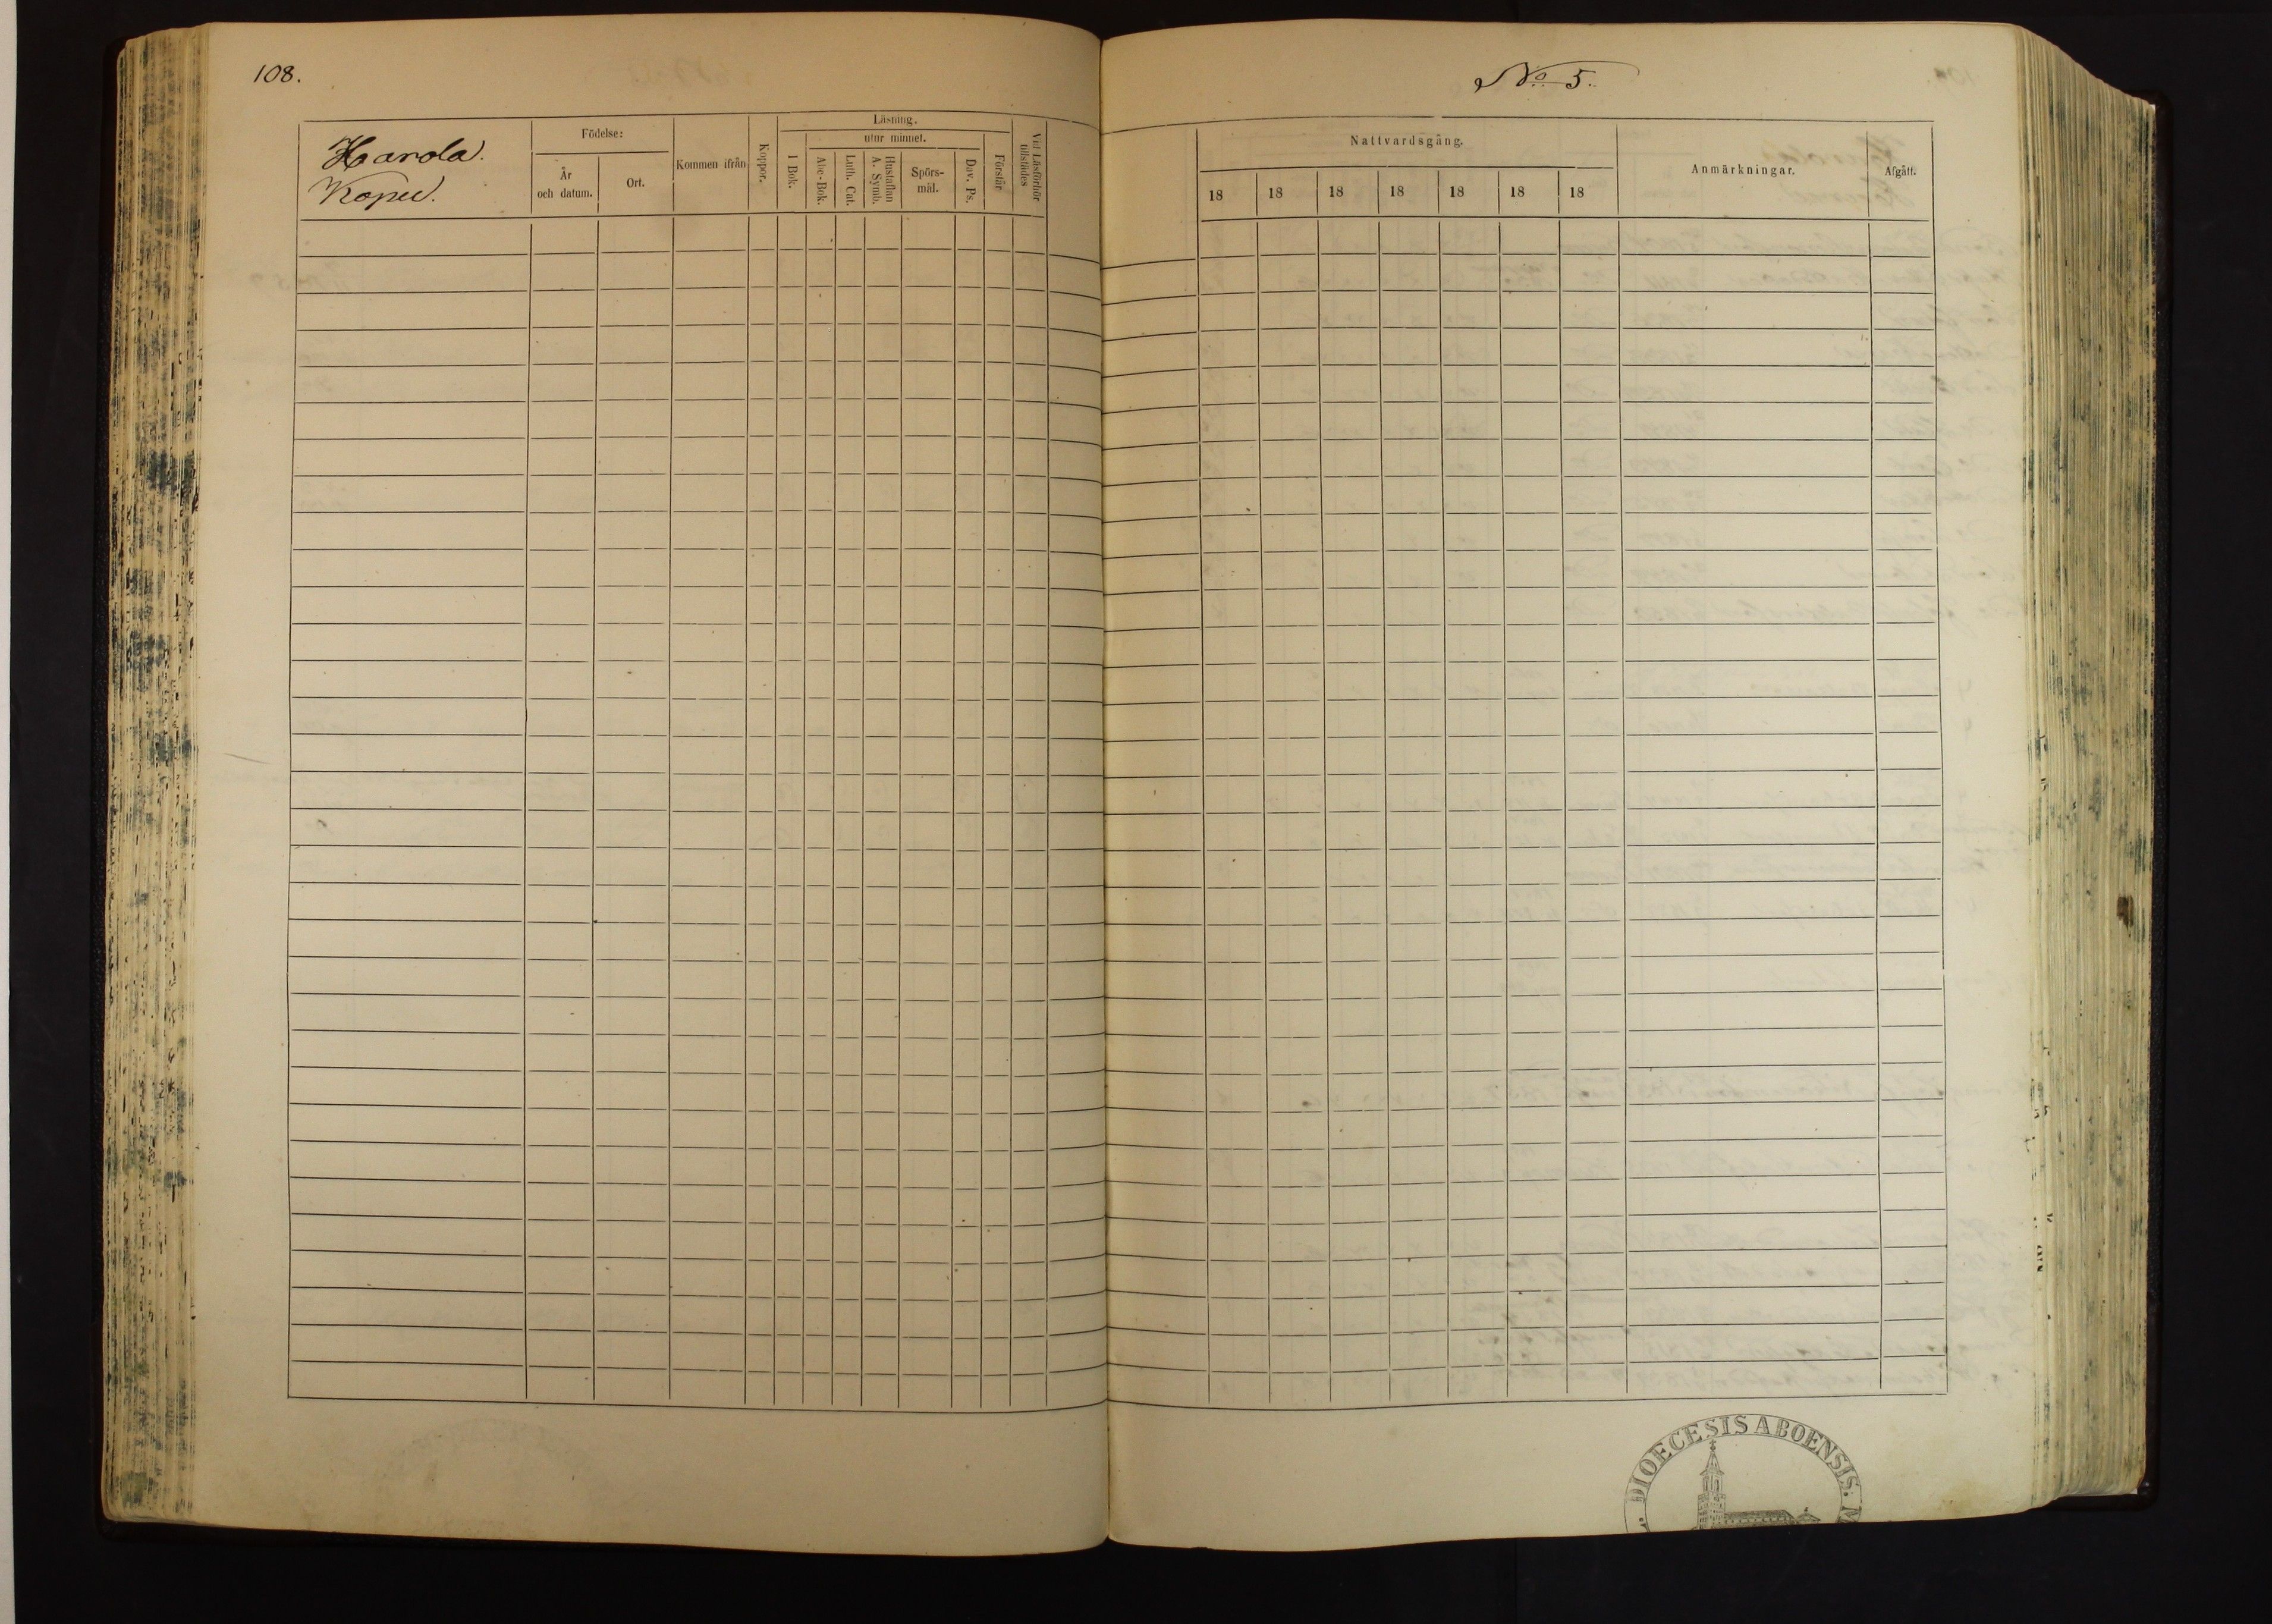 108.
No 5.
Harola.
Födelse:
År
och datum.
Ort.
Kommen ifrån
Koppor.
Läsning.
utur minnet.
I Bok.
Abc-Bok.
Luth. Cat.
Hustaflan
A. Symb.
Spörs-
mål.
Dav. Ps.
Förstår
Vid Läsförhör
tillstädes
Nattvardsgång.
18 18 18 18 18 18 18
Anmärkningar.
Afgått.
DIOECESIS ABOENSIS. M